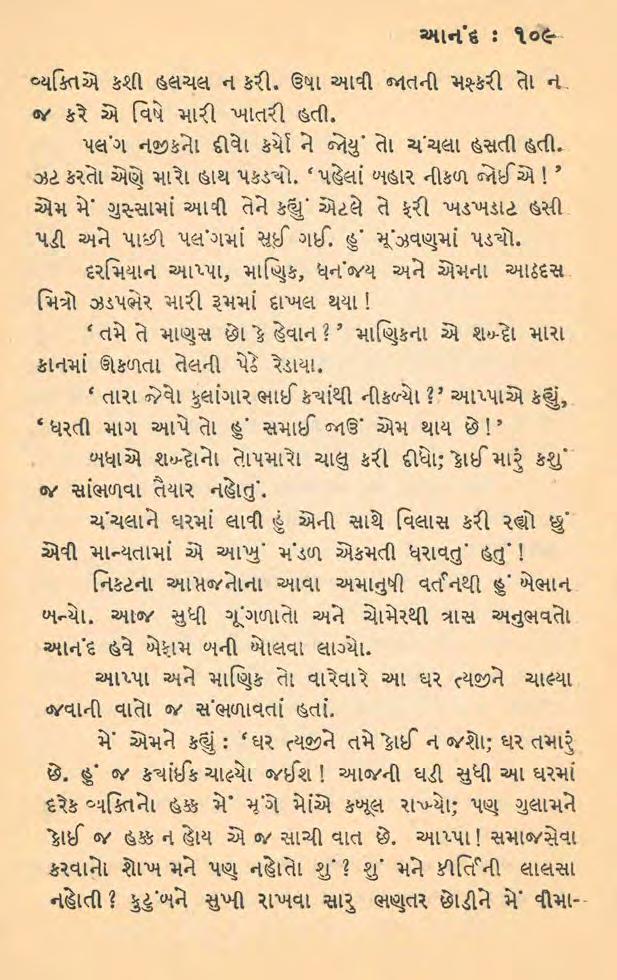 આનંદ : ૧૦૯
વ્યક્તિએ કશી હલચલ ન કરી. ઉષા આવી જાતની મશ્કરી તો ન
જ કરે એ વિષે મારી ખાતરી હતી.
પલંગ નજીકનો દીવો કર્યો ને જોયું તો ચંચલા હસતી હતી.
ઝટ કરતો એણે મારો હાથ પકડ્યો. ‘પહેલાં બહાર નીકળ જોઈએ !’
એમ મેં ગુસ્સામાં આવી તેને કહ્યું એટલે તે ફરી ખડખડાટ હસી
પડી અને પાછી પલંગમાં સૂઈ ગઈ. હું મૂંઝવણમાં પડ્યો.
દરમિયાન આપ્પા, માણિક, ધનંજય અને એમના આઠદસ
મિત્રો ઝડપભેર મારી રૂમમાં દાખલ થયા !
‘તમે તે માણસ છો કે હેવાન ?’ માણિકના એ શબ્દો મારા
કાનમાં ઊકળતા તેલની પેઠે રેડાયા.
‘તારા જેવો કુલાંગાર ભાઈ ક્યાંથી નીકળ્યો ?’ આપ્પાએ કહ્યું,
‘ધરતી માગ આપે તો હું સમાઈ જાઉં એમ થાય છે !’
બધાએ શબ્દોનો તોપમારો ચાલુ કરી દીધો; કોઈ મારું કશું
જ સાંભળવા તૈયાર નહોતું.
ચંચલાને ઘરમાં લાવી હું એની સાથે વિલાસ કરી રહ્યો છું
એવી માન્યતામાં એ આખું મંડળ એકમતી ધરાવતું હતું !
નિકટના આપ્તજનોના આવા અમાનુષી વર્તનથી હું બેભાન
બન્યો. આજ સુધી ગૂંગળાતો અને ચોમેરથી ત્રાસ અનુભવતો
આનંદ હવે બેફામ બની બોલવા લાગ્યો.
આપ્પા અને માણિક તો વારેવારે આ ઘર ત્યજીને ચાલ્યા
જવાની વાતો જ સંભળાવતાં હતાં.
મેં એમને કહ્યું : ‘ઘર ત્યજીને તમે કોઈ ન જશો; ઘર તમારું
છે. હું જ ક્યાંઈક ચાલ્યો જઈશ ! આજની ઘડી સુધી આ ઘરમાં
દરેક વ્યક્તિનો હક્ક મેં મૂંગે મોંએ કબૂલ રાખ્યો; પણ ગુલામને
કોઈ જ હક્ક ન હોય એ જ સાચી વાત છે. આપ્પા ! સમાજસેવા
કરવાનો શોખ મને પણ નહોતો શું ? શું મને કીર્તિની લાલસા
નહોતી ? કુટુંબને સુખી રાખવા સારુ ભણતર છોડીને મેં વીમા-